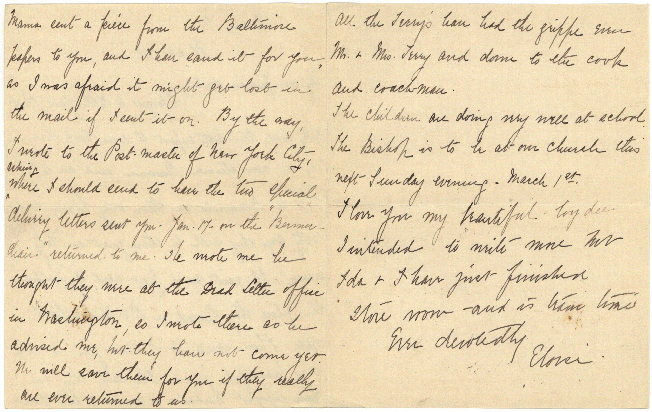 Mama sent a piece from the Baltimore
papers to you, and I have saved it for you,
as I was afraid it might get lost in
the mail if I sent it on. By the way,
I wrote to the Post-master of New York City,
asking
where I should send to have the two special
delivery letters sent you Jan. 17. on the "Bermu-
" returned to me. He wrote me he
thought they were at the Dead Letter office
in Washington, so I wrote there as he
advised me, but they have not come yet.
We will save them for you if they really
are ever returned to us.
All the Terry's have had the grippe even
Mr. & Mrs. Terry and down to the cook
and coachman.
The children are doing very well at school
The Bishop is to be at our church this
next Sunday evening - March 1st.
I love you my beautiful
I intended to write more but
Ida & I have just finished
Store room - and is train time
Ever devotedly
Eloise.